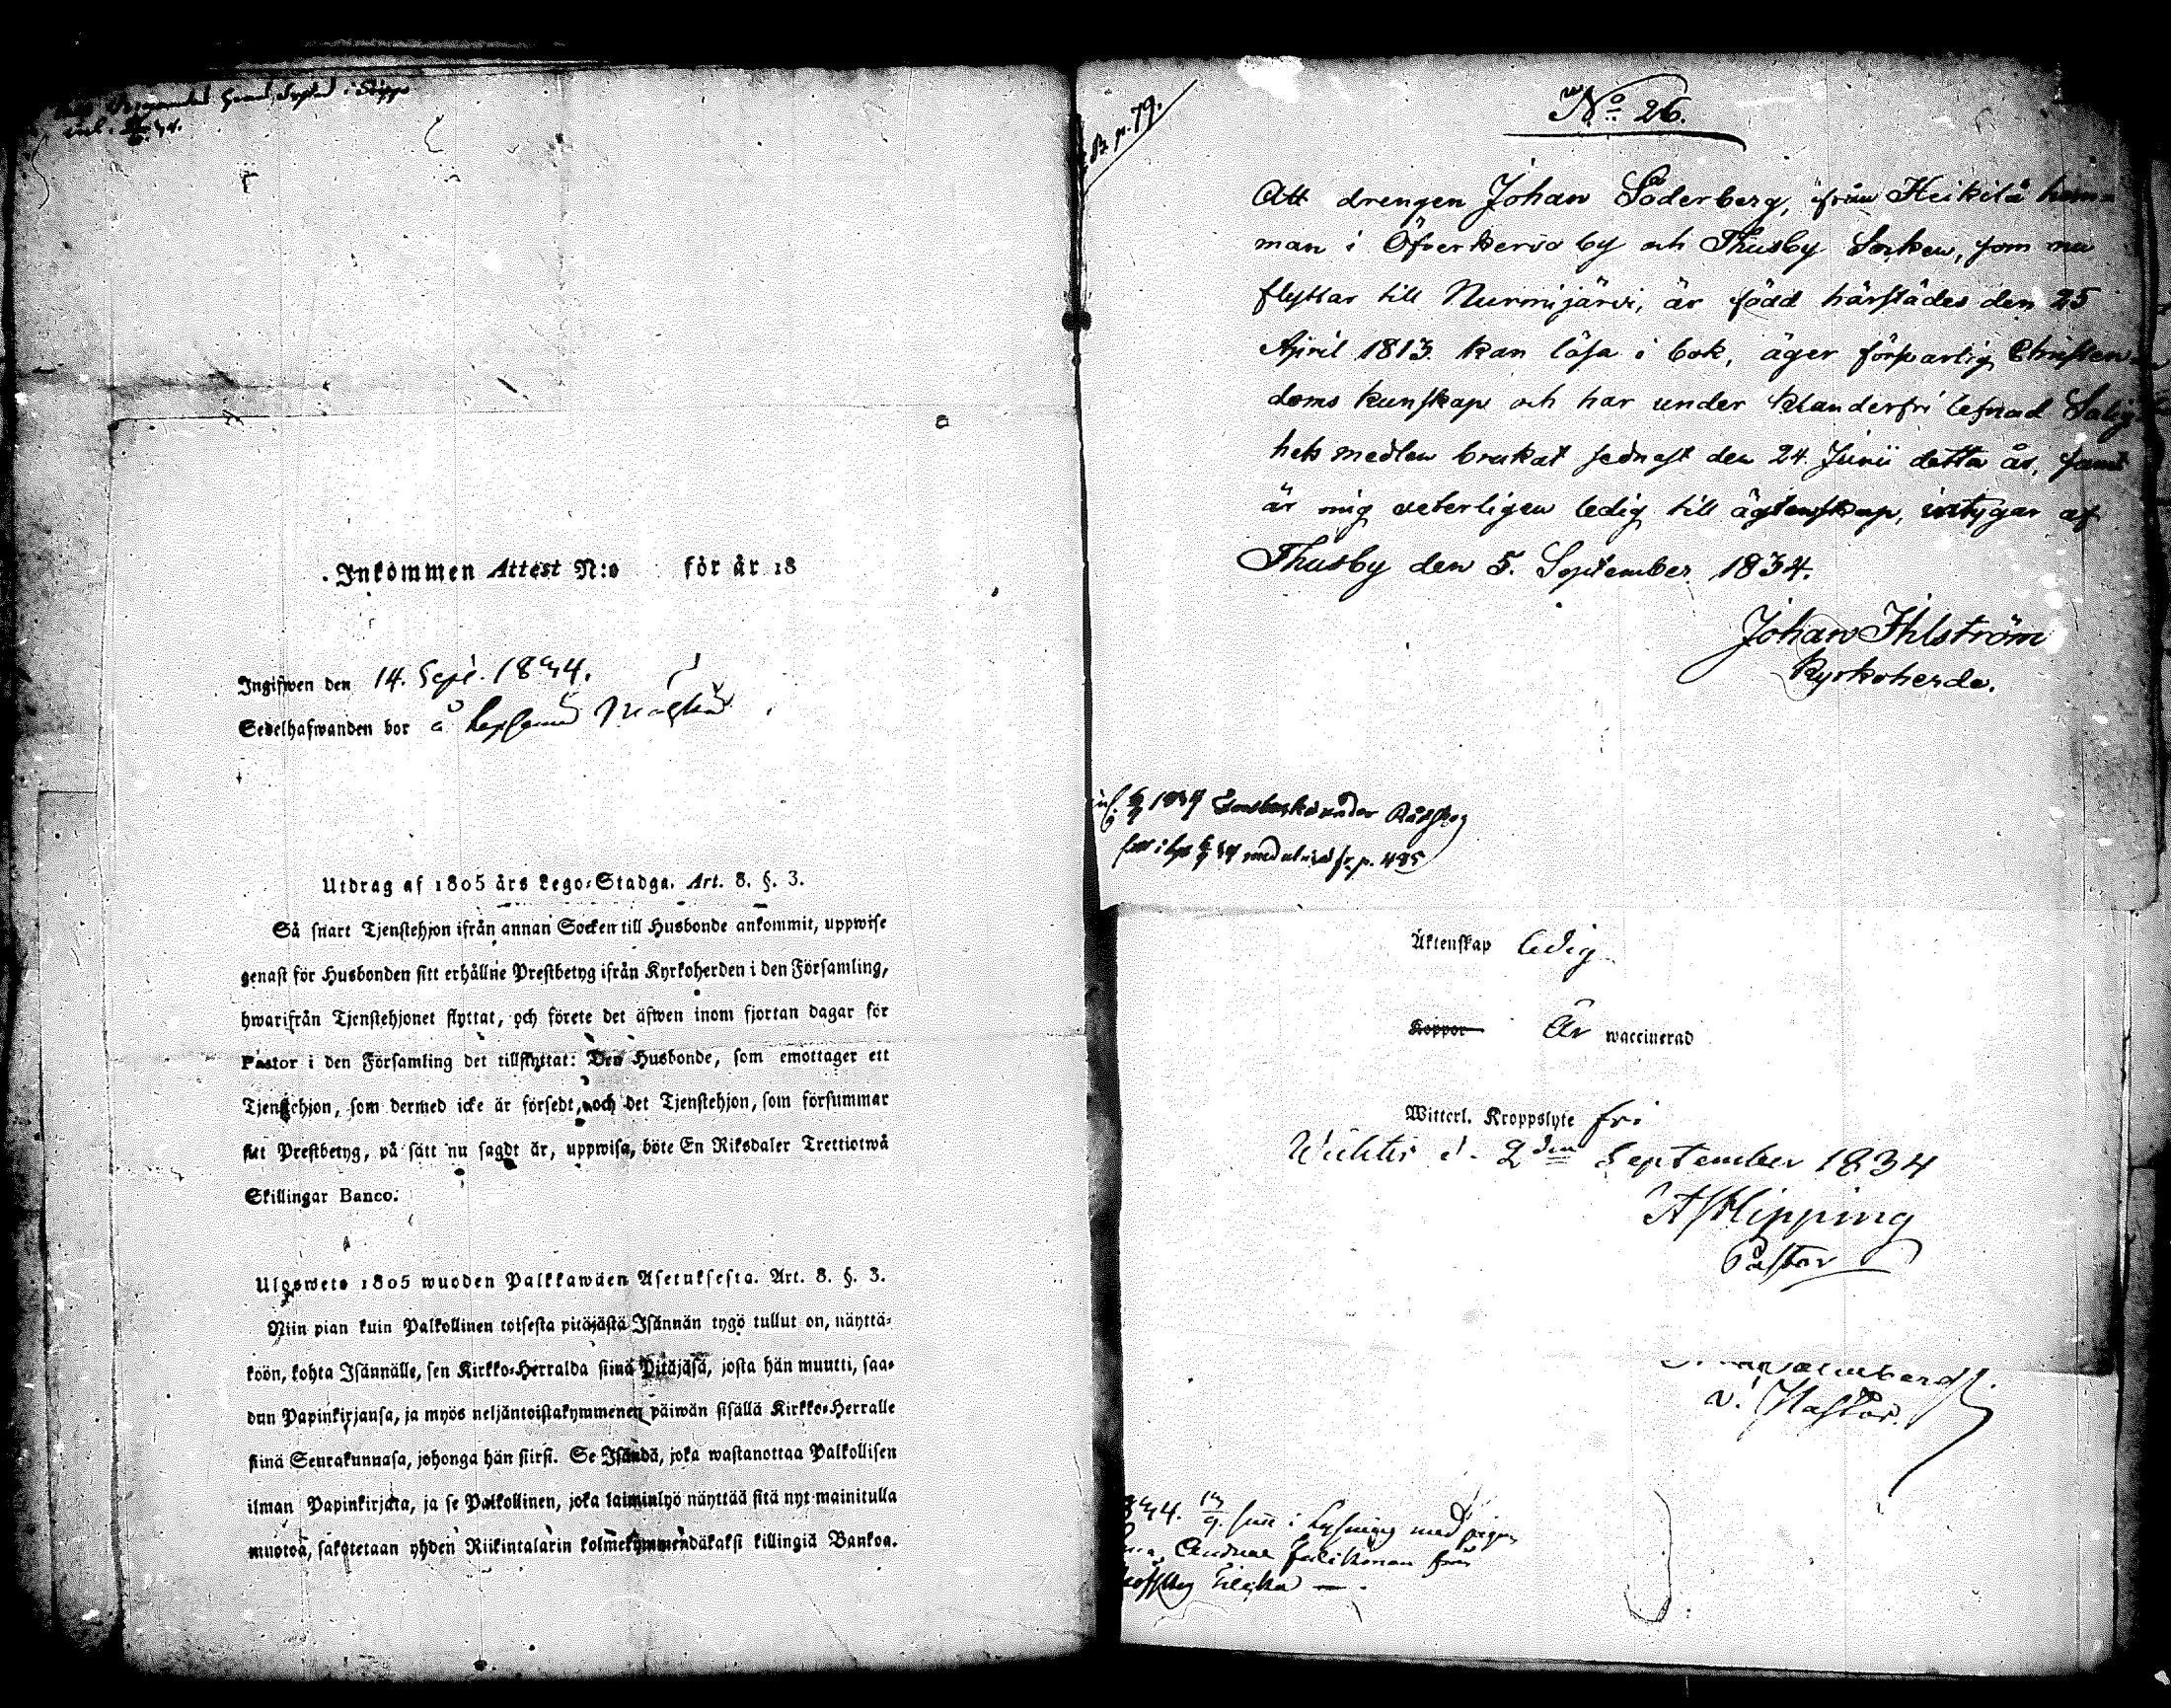 Inkommen Attest N:o för år 18
Ingifwen den 14. Sept. 1834.
Sedelhafwanden bor å
Utdrag af 1805 års Lego-Stadga. Art. 8. §. 3.
Så snart Tjenstehjon ifrån annan Socken till Husbonde ankommit, uppwise
genast för Husbonden sitt erhållne Prestbetyg ifrån Kyrkoherden i den Församling,
hwarifrån Tjenstehjonet flyttat, och förete det äfwen inom fjortan dagar för
Pastor i den Församling det tillflyttat: Den Husbonde, som emottager ett
Tjenstehjon, som dermed icke är försedt, och det Tjenstehjon, som försummar
sitt Prestbetyg, på sätt nu sagdt är, uppwisa, böte En Riksdaler Trettiotwå
Skillingar Banco.
Ulgswets 1805 wuoden Palkkawäen Asetuksesta. Art. 8. §. 3.
Niin pian kuin Palkollinen toisesta pitäjästä Isännän tygö tullut on, näyttä-
köön, kohta Isännälle, sen Kirkko-Herralda siinä Pitäjäsä, josta hän muutti, saa-
dun Papinkirjansa, ja myös neljäntoistakymmenen päiwän sisällä Kirkko-Herralle
siinä Seurakunnasa, johonga hän siirsi. Se Isändä, joka wastanottaa Palkollisen
ilman Papinkirjata, ja se Palkollinen, joka laiminlyö näyttää sitä nyt mainitulla
muotoa, sakotetaan yhden Riikintalarin kolmekymmendäkaksi killingiä Bankoa.
B. p. 79.
No 26.
Att drengen Johan Söderberg, ifrån Heikilä hem-
man i Öfverkervo by och Thusby Socken, som nu
flyttar till Nurmijärvi, är född härstädes den 25
April 1813. kan läsa i bok, äger försvarlig Christen-
doms kunskap och har under klanderfri lefnad Salig-
hets medlen brukat sednast den 24. Junii detta år, samt
är mig veterligen ledig till ägtenskap, intygar af
Thusby den 5. September 1834.
Johan Ihlström
Kyrkoherde.
1834
p. 485
Äktenskap ledig
Koppor Är waccinerad
Witterl. Kroppslyte fri
Wichtis d. 2den September 1834
Hipping
Pastor
v. Pastor.
i Lysning med pigan